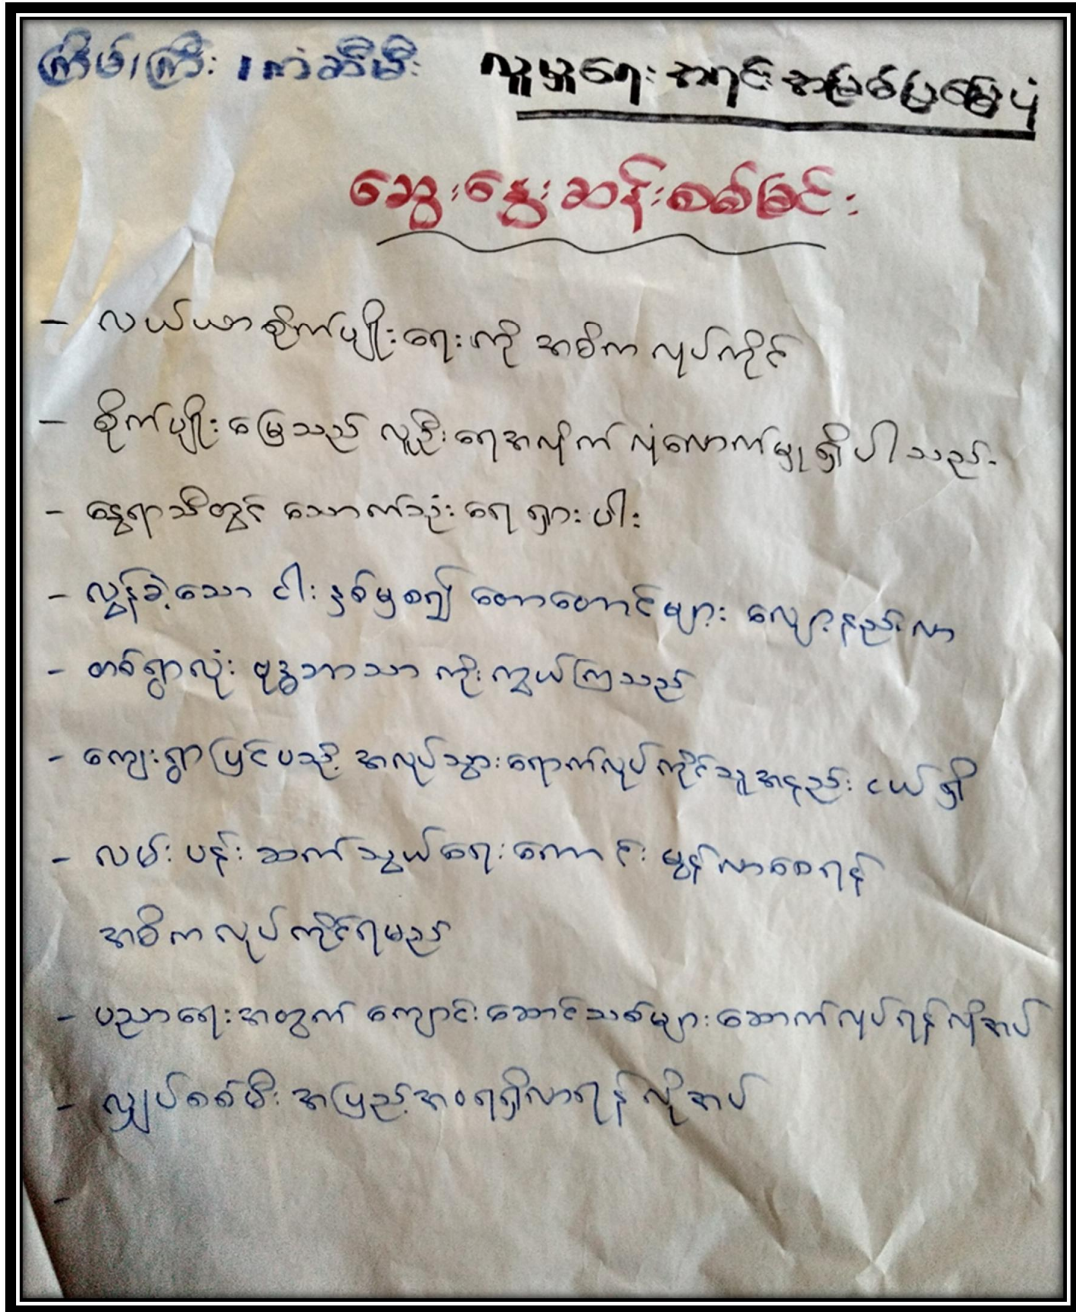 ကြိမ်ကြီး ၊ ကံဆီမီး လူမှုရေး အရင်းအမြစ်ပြမြေပုံ
ဆွေးနွေးဆန်းစစ်ခြင်း
- လယ်ယာစိုက်ပျိုးရေးကို အဓိက လုပ်ကိုင်
- စိုက်ပျိုးမြေသည် လူဦးရေအလိုက် လုံလောက်မှုရှိပါသည်
- နွေရာသီတွင် သောက်သုံးရေ ရှားပါး
- လွန်ခဲ့သော ငါးနှစ်မှစ၍ တောတောင်များ လျော့နည်းလာ
- တစ်ရွာလုံး ဗုဒ္ဓဘာသာ ကိုးကွယ်ကြသည်
- ကျေးရွာပြင်ပသို့ အလုပ်သွားရောက်လုပ်ကိုင်သူအနည်းငယ်ရှိ
- လမ်းပန်းဆက်သွယ်ရေးကောင်းမွန်လာစေရန်
အဓိက လုပ်ကိုင်ရမည်
- ပညာရေးအတွက် ကျောင်းဆောင်သစ်များဆောက်လုပ်ရန်လိုအပ်
- လျှပ်စစ်မီး အပြည့်အဝရရှိလာရန် လိုအပ်
-